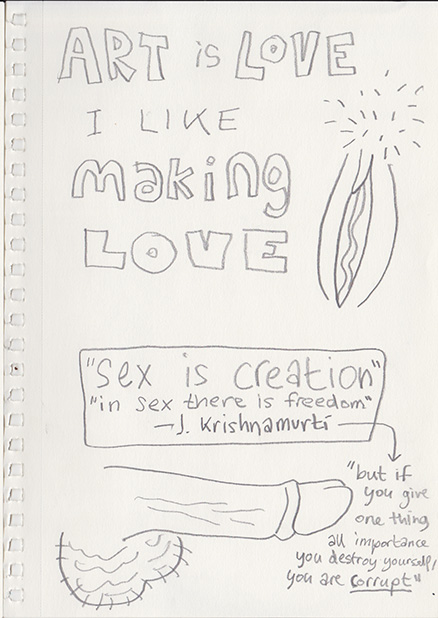 ART is LOVE
I LIKE
making
LOVE
"sex is creation"
"in sex there is freedom"
— J. Krishnamurti
"but if
you give
one thing
all importance
you destroy yourself,
you are corrupt"